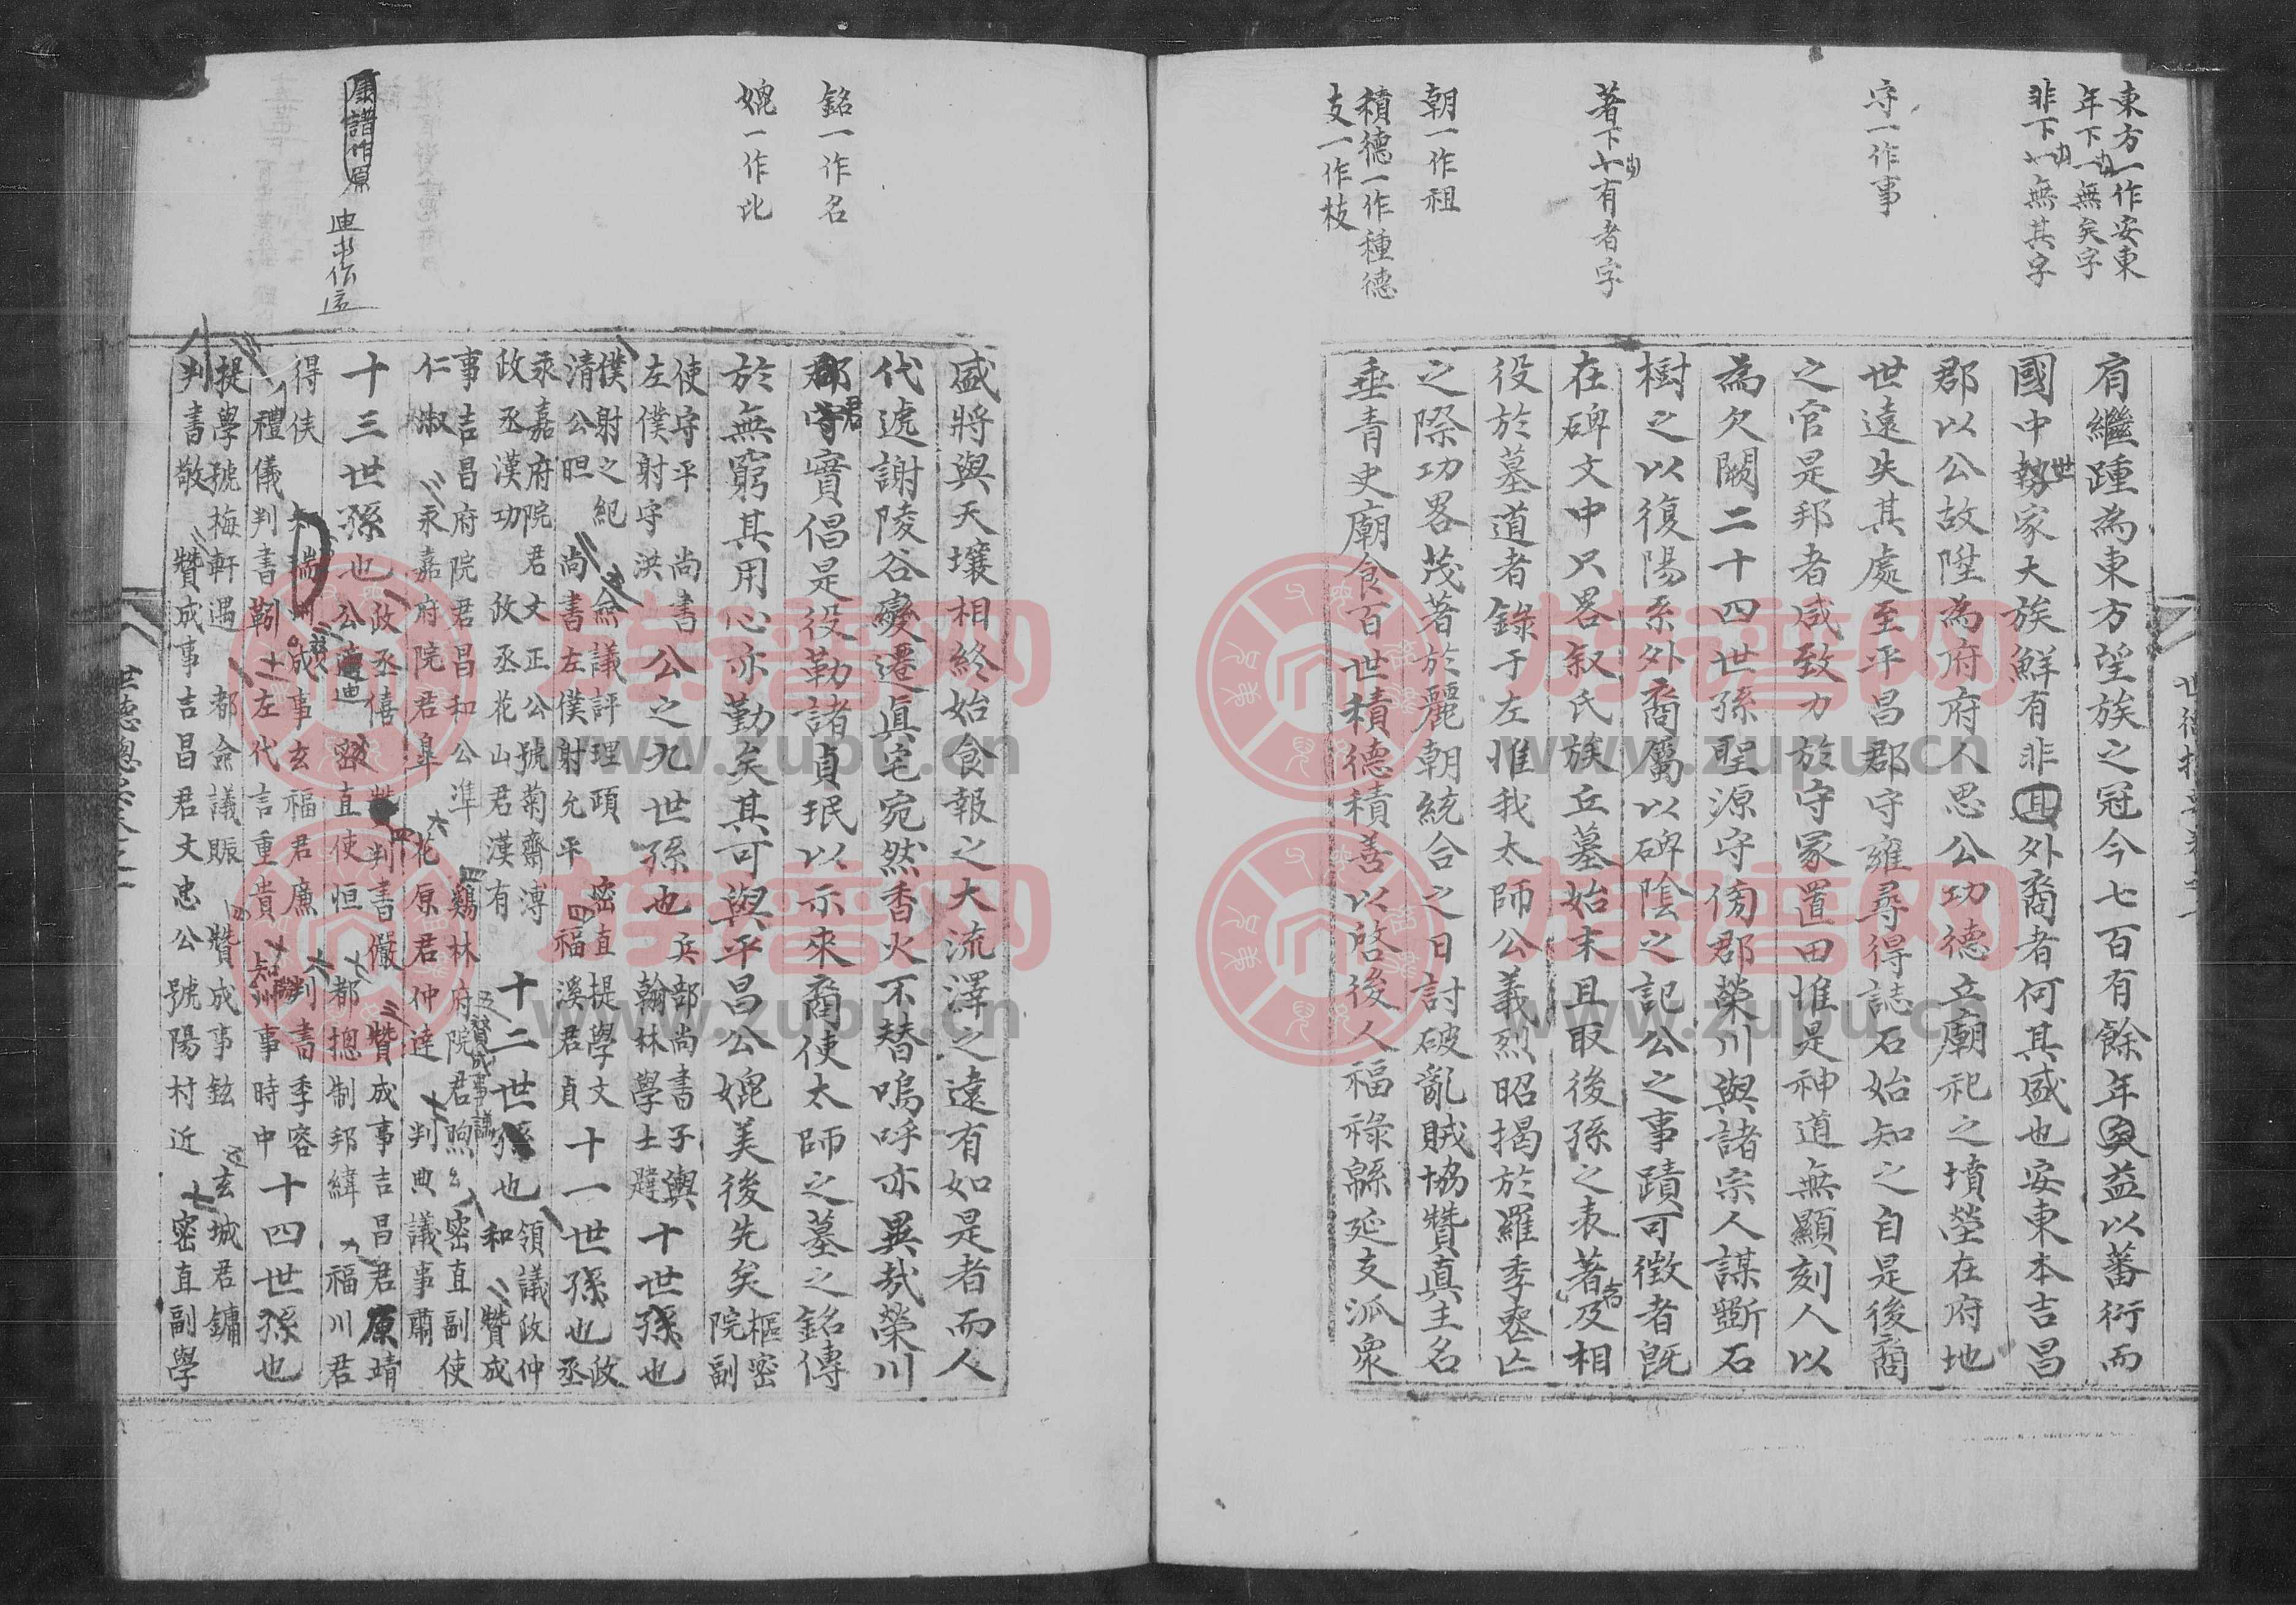 東方一作安東
年下一無矣字
非下一無其字
守一作事
著下一有者字
朝一作祖
積德一作種德
支一作枝
肩繼踵為東方望族之冠今七百有餘年矣益以蕃衍而
國中勢家大族鮮有非其外裔者何其盛也安東本吉昌
世
郡以公故陞為府府人思公功德立廟祀之墳塋在府地
世遠失其處至平昌郡守雍尋得誌石始知之自是後裔
之官是邦者咸致力於守冢置田惟是神道無顯刻人以
為欠闕二十四世孫聖源守傍郡榮川與諸宗人謀斲石
樹之以復陽系外裔屬以碑陰之記公之事蹟可徵者旣
在碑文中只畧叙氏族丘墓始末且取後孫之表著及相
者
役於墓道者錄于左惟我太師公義烈昭揭於羅季麗亡
之際功畧茂著於麗朝統合之日討破亂賊協贊真主名
垂青史廟食百世積德積善以啓後人福祿緜延支派衆
銘一作名
媲一作比
康譜作原
盛將與天壤相終始食報之大流澤之遠有如是者而人
代遞謝陵谷變遷真宅宛然香火不替嗚呼亦異哉榮川
郡守實倡是役勒諸貞珉以示來裔使太師之墓之銘傳
君
於無窮其用心亦勤矣其可與平昌公媲美後先矣樞密
院副
使守平 尚書公之九世孫也兵部尚書子輿十世孫也
左僕射守洪 翰林學士韙
僕射之紀 僉議評理頙 密直提學文 十一世孫也政
清公㫜 尚書左僕射允平 福溪君貞 丞
永嘉府院君文正公號菊齋溥 十二世孫也領議政仲
政丞漢功 政丞花山君漢有 和 贊成
事吉昌府院君昌和公準 雞林府院君煦 密直副使
仁淑 永嘉府院君皐 花原君仲達 判典議事肅
十三世孫也政丞僖 判書儼 贊成事吉昌君 靖
公迪 密直使恒 都摠制邦緯 福川君
得侠 成事玄福君廉 判書季容 十四世孫也
禮儀判書 左代言重貴 知州事時中
提學號梅軒遇 都僉議賑 贊成事鉉 玄城君鏞
判書敬 贊成事吉昌君文忠公號陽村近 密直副學
族譜网
www.zupu.cn
族譜网
www.zupu.cn
族譜网
www.zupu.cn
族譜网
www.zupu.cn